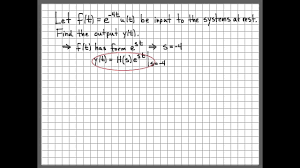 Let f(t) = e^{-4t} u(t) be input to the systems at rest.
Find the output y(t).
⇒ f(t) has form e^{st} ⇒ s = -4
y(t) = H(s) e^{st} |_{s=-4}